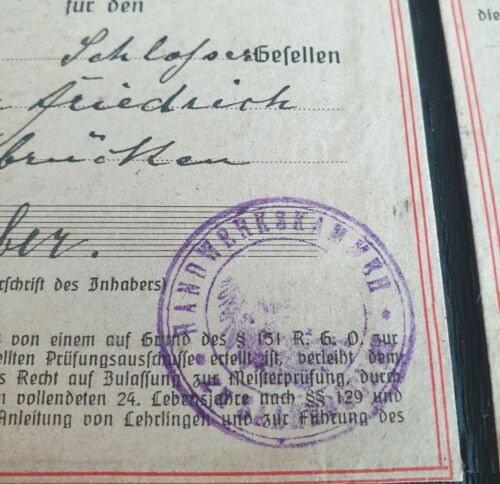 für den
die
Schlosser Gesellen
Friedrich
brücken
ber.
rschrift des Inhabers)
HANDWERKSKAMMER
von einem auf Grund des § 131 R. G. O. zur
ellten Prüfungsausschusse erteilt ist, verleiht dem
s Recht auf Zulassung zur Meisterprüfung, durch
n vollendeten 24. Lebensjahre nach §§ 129 und
Anleitung von Lehrlingen und zur Führung des